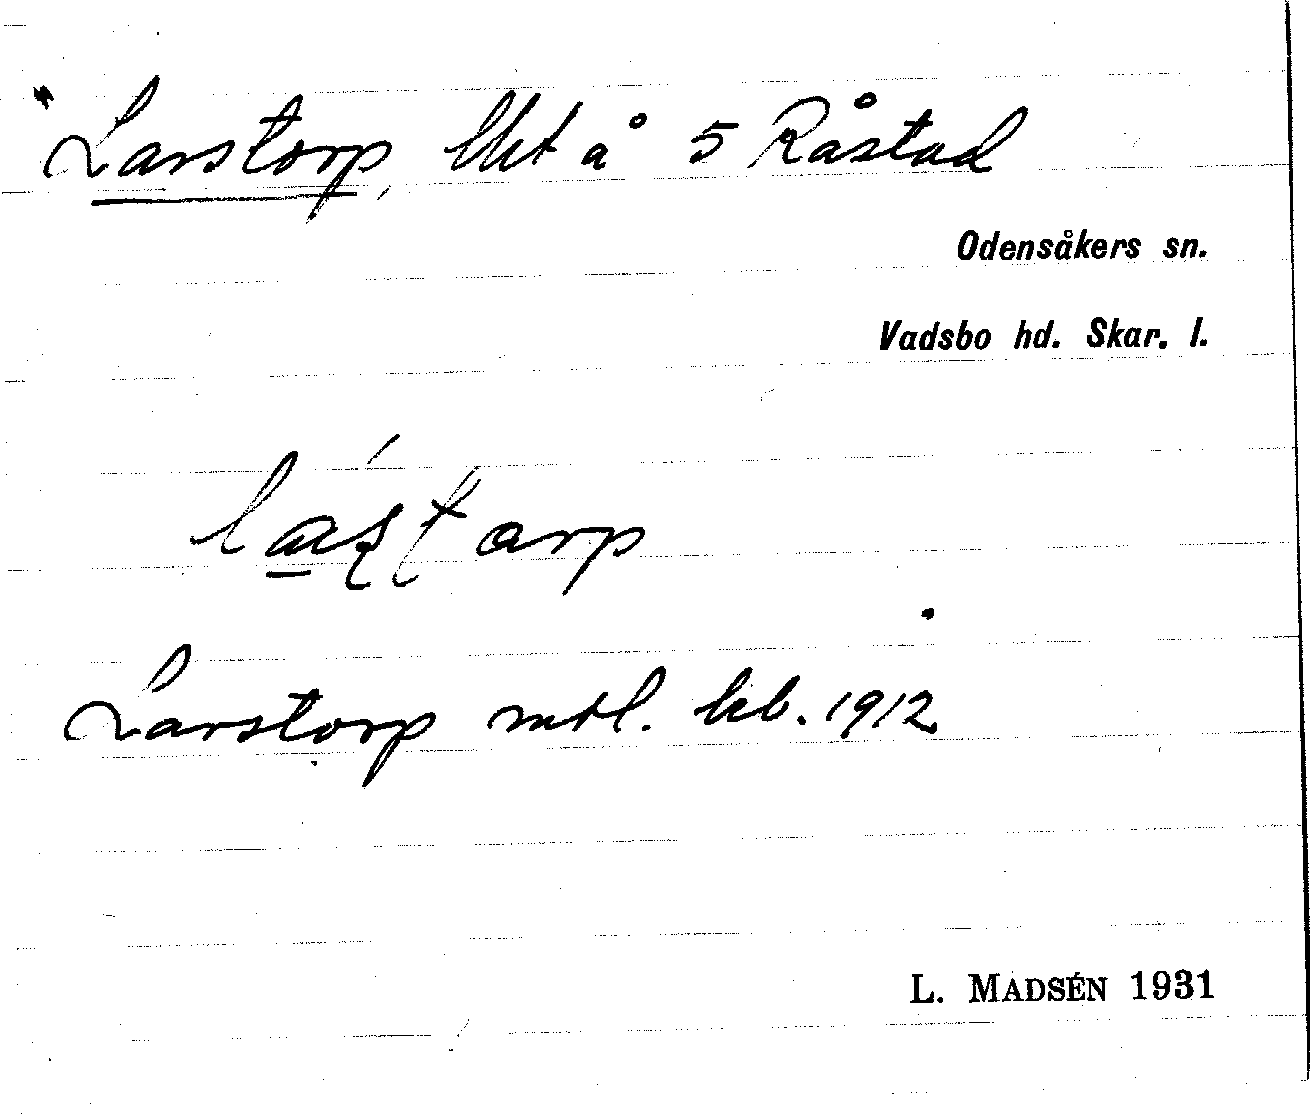 Larstorp, lht å 5 Råstad
Odensåkers sn.
Vadsbo hd. Skar. l.
Larstorp mtl. kb. 1912
L. MADSÉN 1931